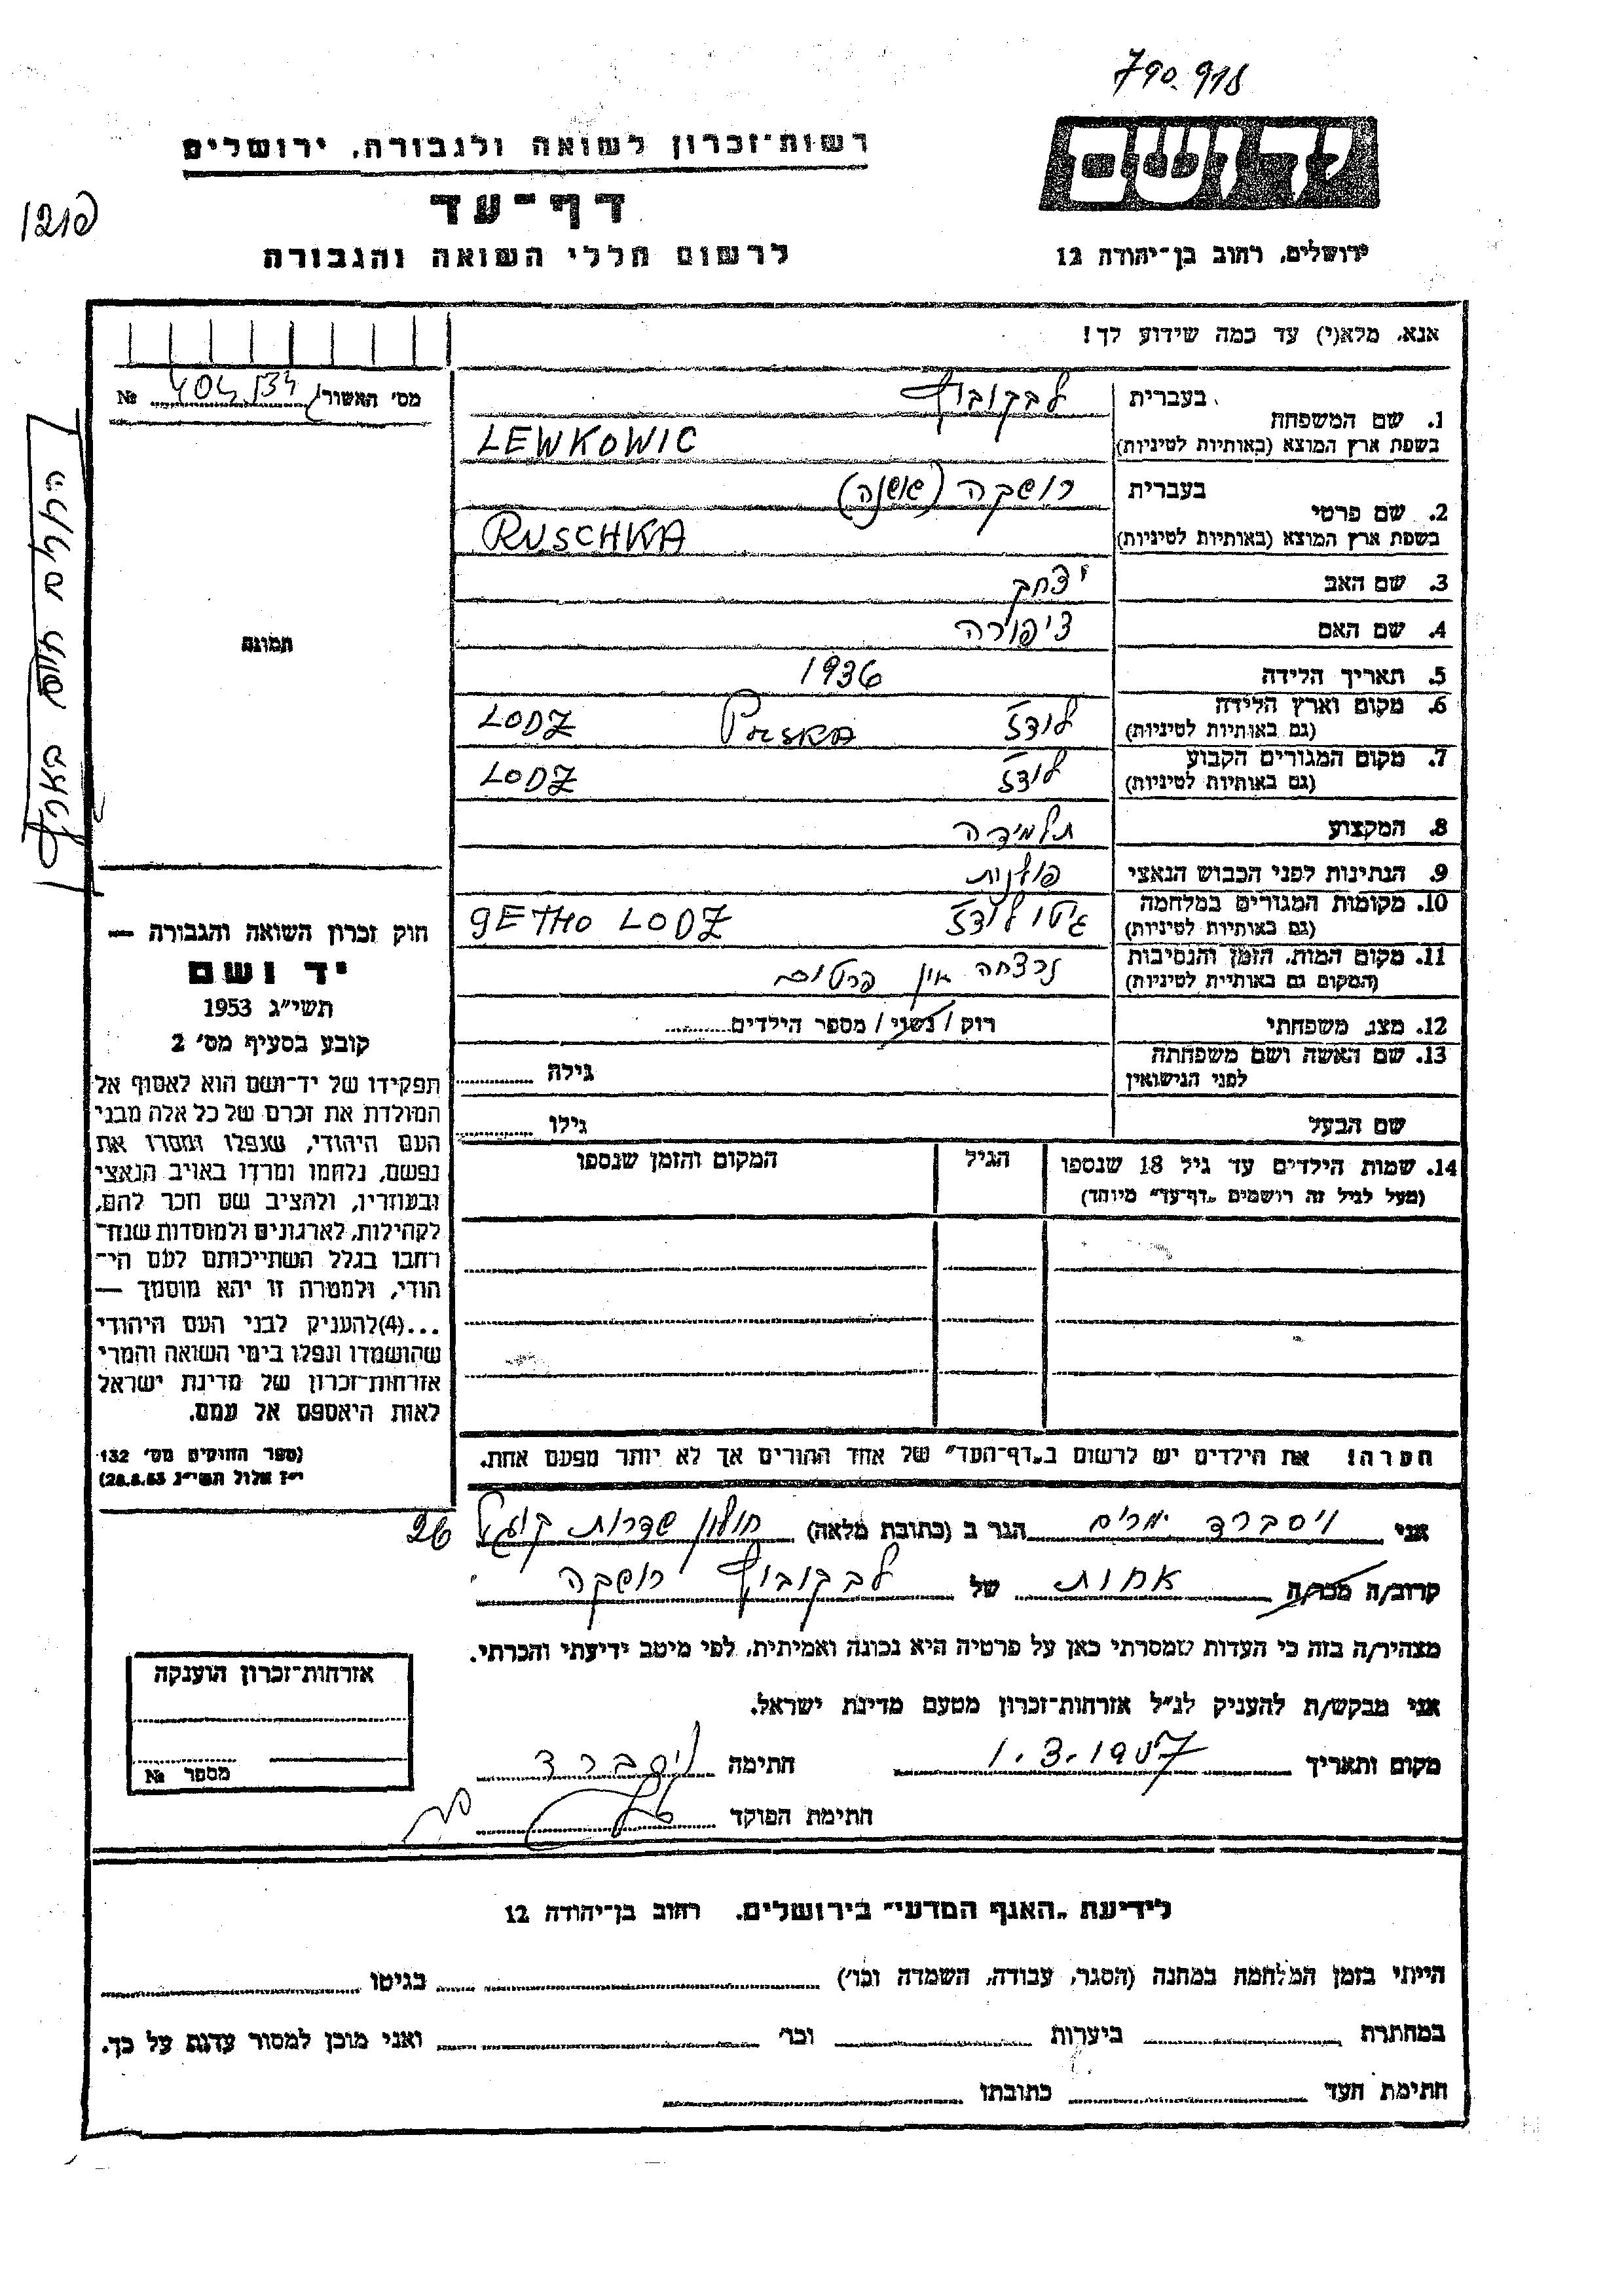 790.918
ידושם
רשות־זכרון לשואה ולגבורה, ירושלים
דף־עד
לרשום חללי השואה והגבורה
ירושלים, רחוב בן־יהודה 12
אנא, מלא(י) עד כמה שידוע לך!
מס' האשור No
1. שם המשפחה בעברית לבקוביץ
בשפת ארץ המוצא (באותיות לטיניות) LEWKOWIC
2. שם פרטי בעברית רושקה (שושנה)
בשפת ארץ המוצא (באותיות לטיניות) RUSCHKA
3. שם האב יצחק
4. שם האם ציפורה
5. תאריך הלידה 1936
6. מקום וארץ הלידה (גם באותיות לטיניות) לודז POLSKA LODZ
7. מקום המגורים הקבוע (גם באותיות לטיניות) לודז LODZ
8. המקצוע תלמידה
9. הנתינות לפני הכבוש הנאצי פולנית
10. מקומות המגורים במלחמה (גם באותיות לטיניות) גיטו לודז GETHO LODZ
11. מקום המות, הזמן והנסיבות (המקום גם באותיות לטיניות) נרצחה אין פרטים
12. מצב משפחתי רוק / נשוי / מספר הילדים
13. שם האשה ושם משפחתה לפני הנישואין גילה
שם הבעל גילו
14. שמות הילדים עד גיל 18 שנספו הגיל המקום והזמן שנספו
(מעל לגיל זה רושמים „דף־עד" מיוחד)
הערה! את הילדים יש לרשום ב„דף־העד" של אחד ההורים אך לא יותר מפעם אחת.
תמונה
חוק זכרון השואה והגבורה —
יד ושם
תשי"ג 1953
קובע בסעיף מס' 2
תפקידו של יד־ושם הוא לאסוף אל
המולדת את זכרם של כל אלה מבני
העם היהודי, שנפלו ומסרו את
נפשם, נלחמו ומרדו באויב הנאצי
ובעוזריו, ולהציב שם וזכר להם,
לקהילות, לארגונים ולמוסדות שנח־
רבו בגלל השתייכותם לעם הי־
הודי, ולמטרה זו יהא מוסמך —
...(4)להעניק לבני העם היהודי
שהושמדו ונפלו בימי השואה והמרי
אזרחות־זכרון של מדינת ישראל
לאות היאספם אל עמם.
(ספר החוקים מס' 132
י"ז אלול תשי"ג 28.8.53)
אני ויסברד מרים הגר ב (כתובת מלאה) חולון שדרות קוגל 26
קרוב/ה מכר/ה אחות של לבקוביץ רושקה
מצהיר/ה בזה כי העדות שמסרתי כאן על פרטיה היא נכונה ואמיתית, לפי מיטב ידיעתי והכרתי.
אני מבקש/ת להעניק לנ"ל אזרחות־זכרון מטעם מדינת ישראל.
מקום ותאריך 1.3.1957 חתימה ויסברד
חתימת הפוקד
אזרחות־זכרון הוענקה
מספר No
לידיעת „האגף המדעי" בירושלים, רחוב בן־יהודה 12
הייתי בזמן המלחמה במחנה (הסגר, עבודה, השמדה וכו') בגיטו
במחתרת ביערות וכו' ואני מוכן למסור עדות על כך.
חתימת העד כתובתו